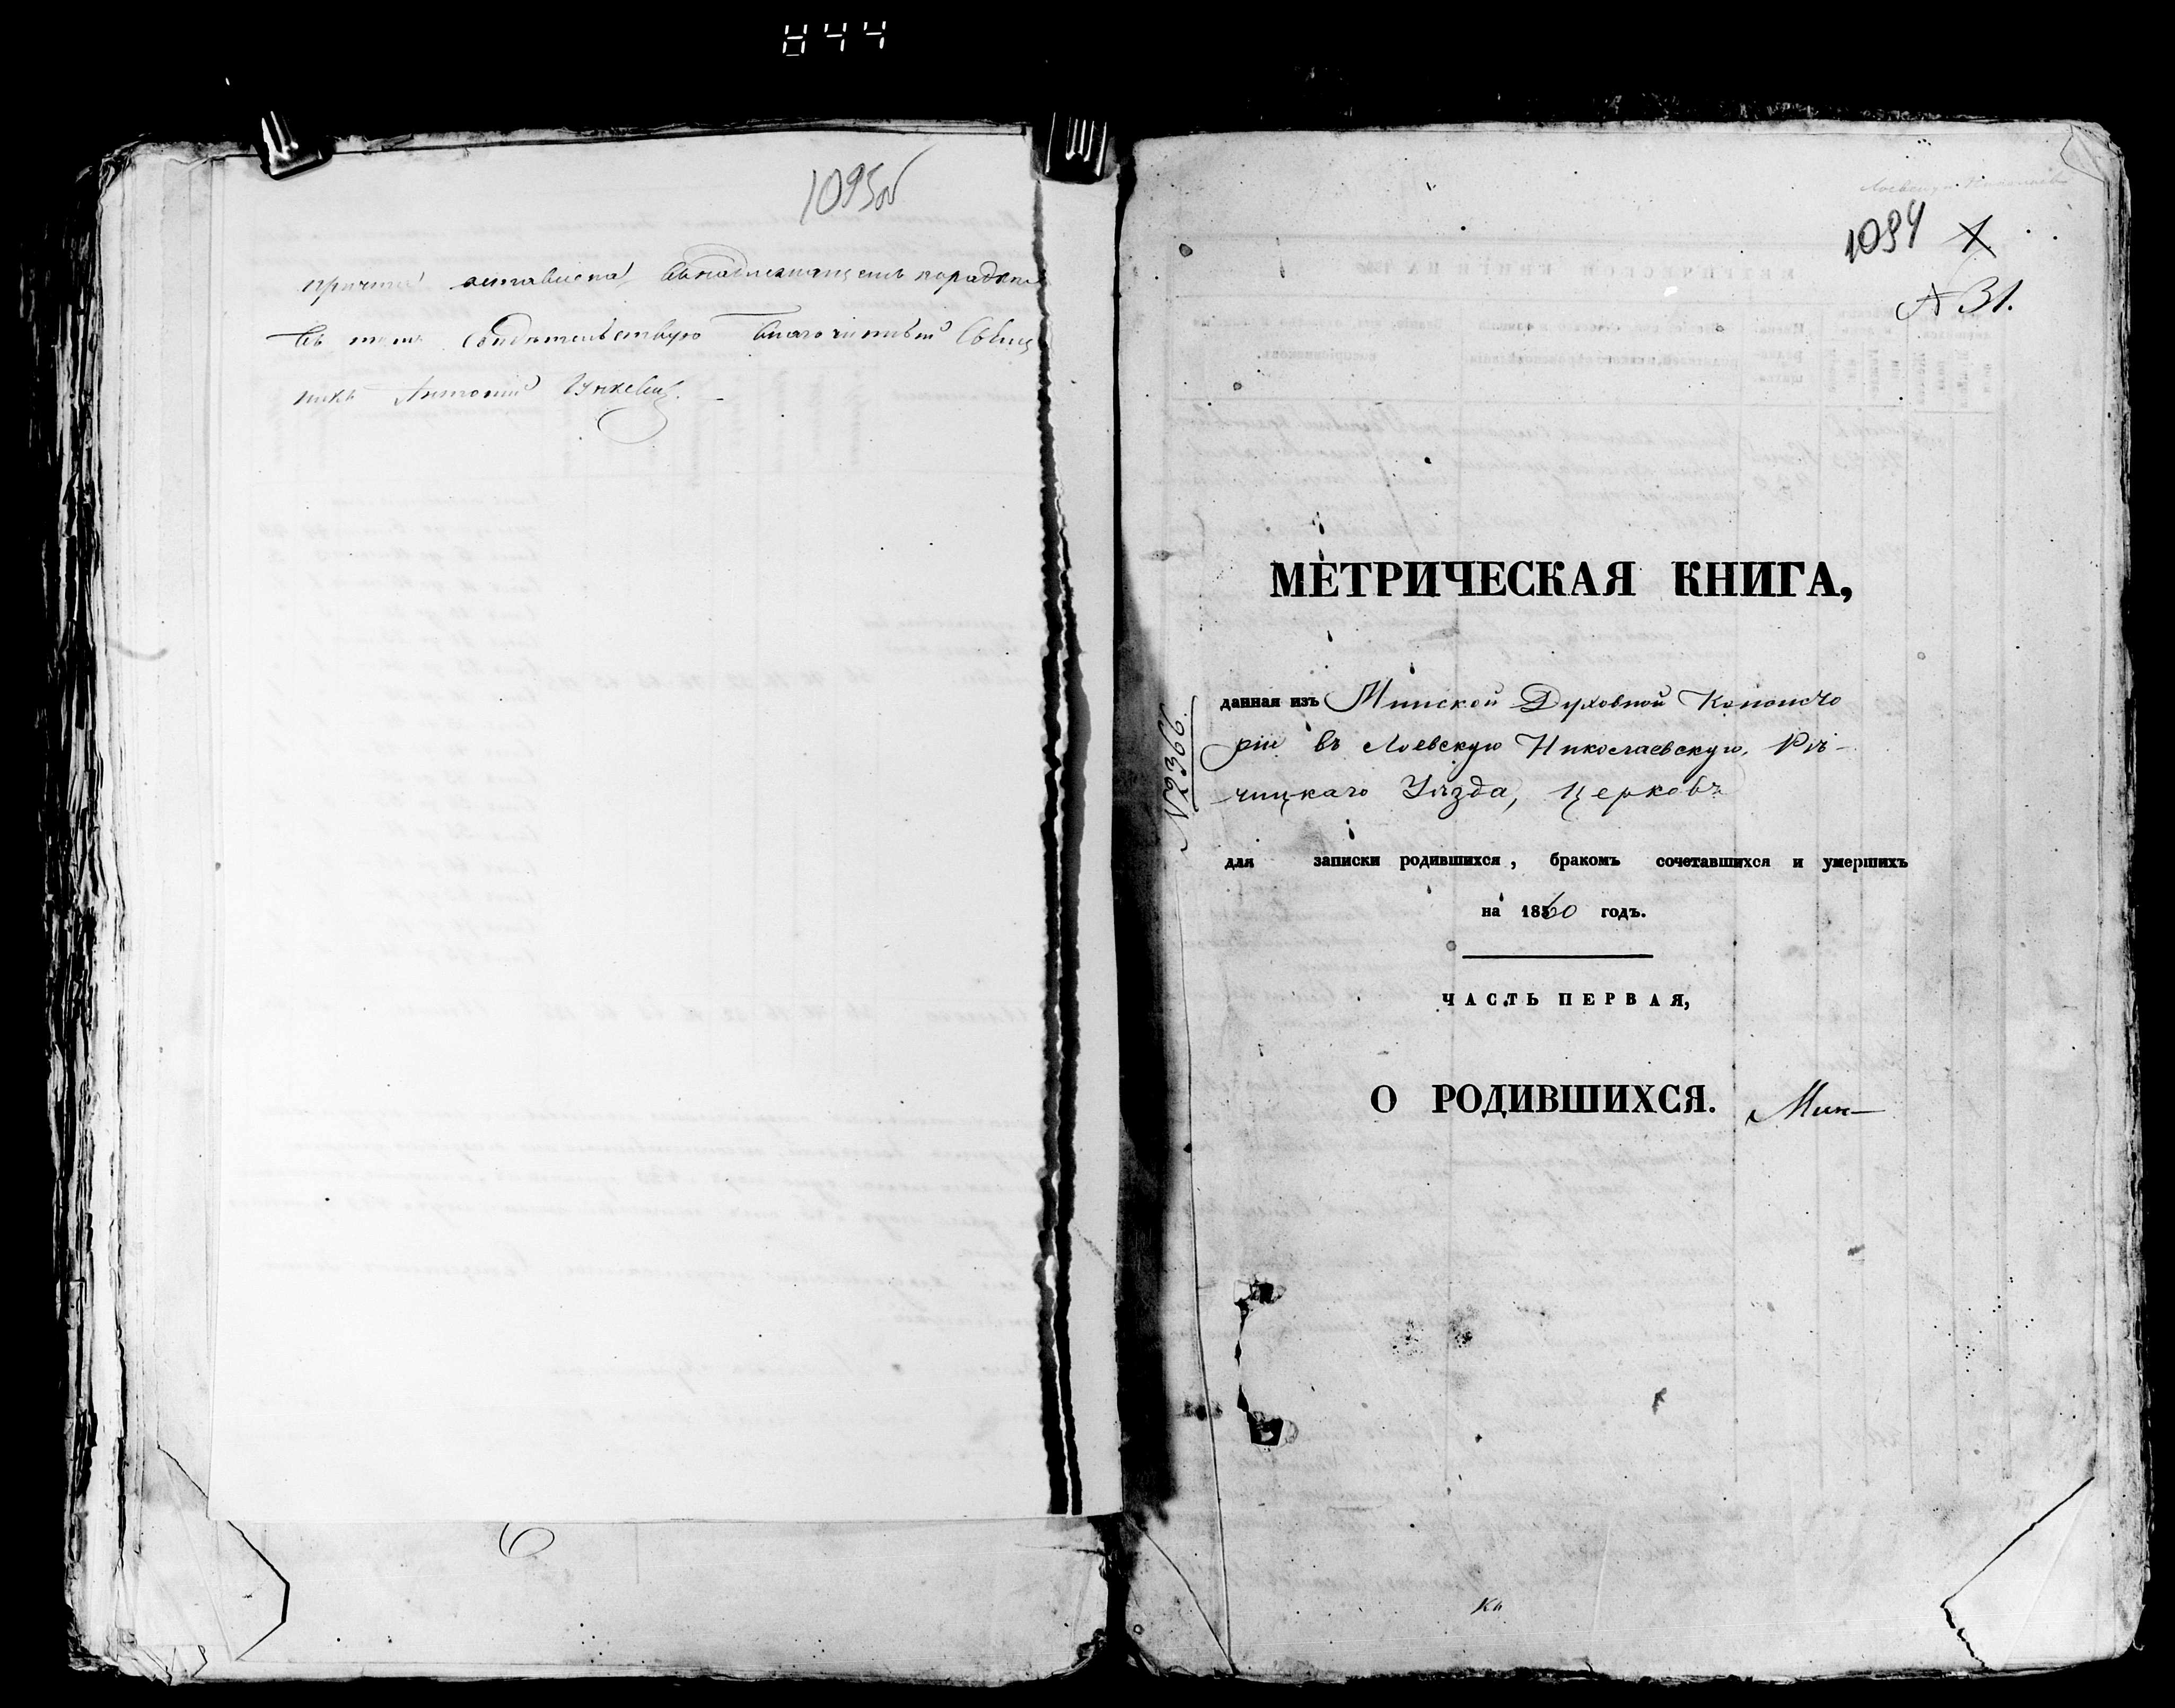 844
1095об
причта оставлена въ надлежащемъ порядкѣ
въ томъ свидѣтельствую Благочинный Свящ
никъ Антоній
1094 1
№ 31.
МЕТРИЧЕСКАЯ КНИГА,
данная изъ Минской Духовной Консисто
ріи въ Лоевскую Николаевскую, Рѣ-
чицкаго Уѣзда, церковь
№ 9366
для записки родившихся, бракомъ сочетавшихся и умершихъ
на 1860 годъ.
ЧАСТЬ ПЕРВАЯ,
О РОДИВШИХСЯ. Мин-
6